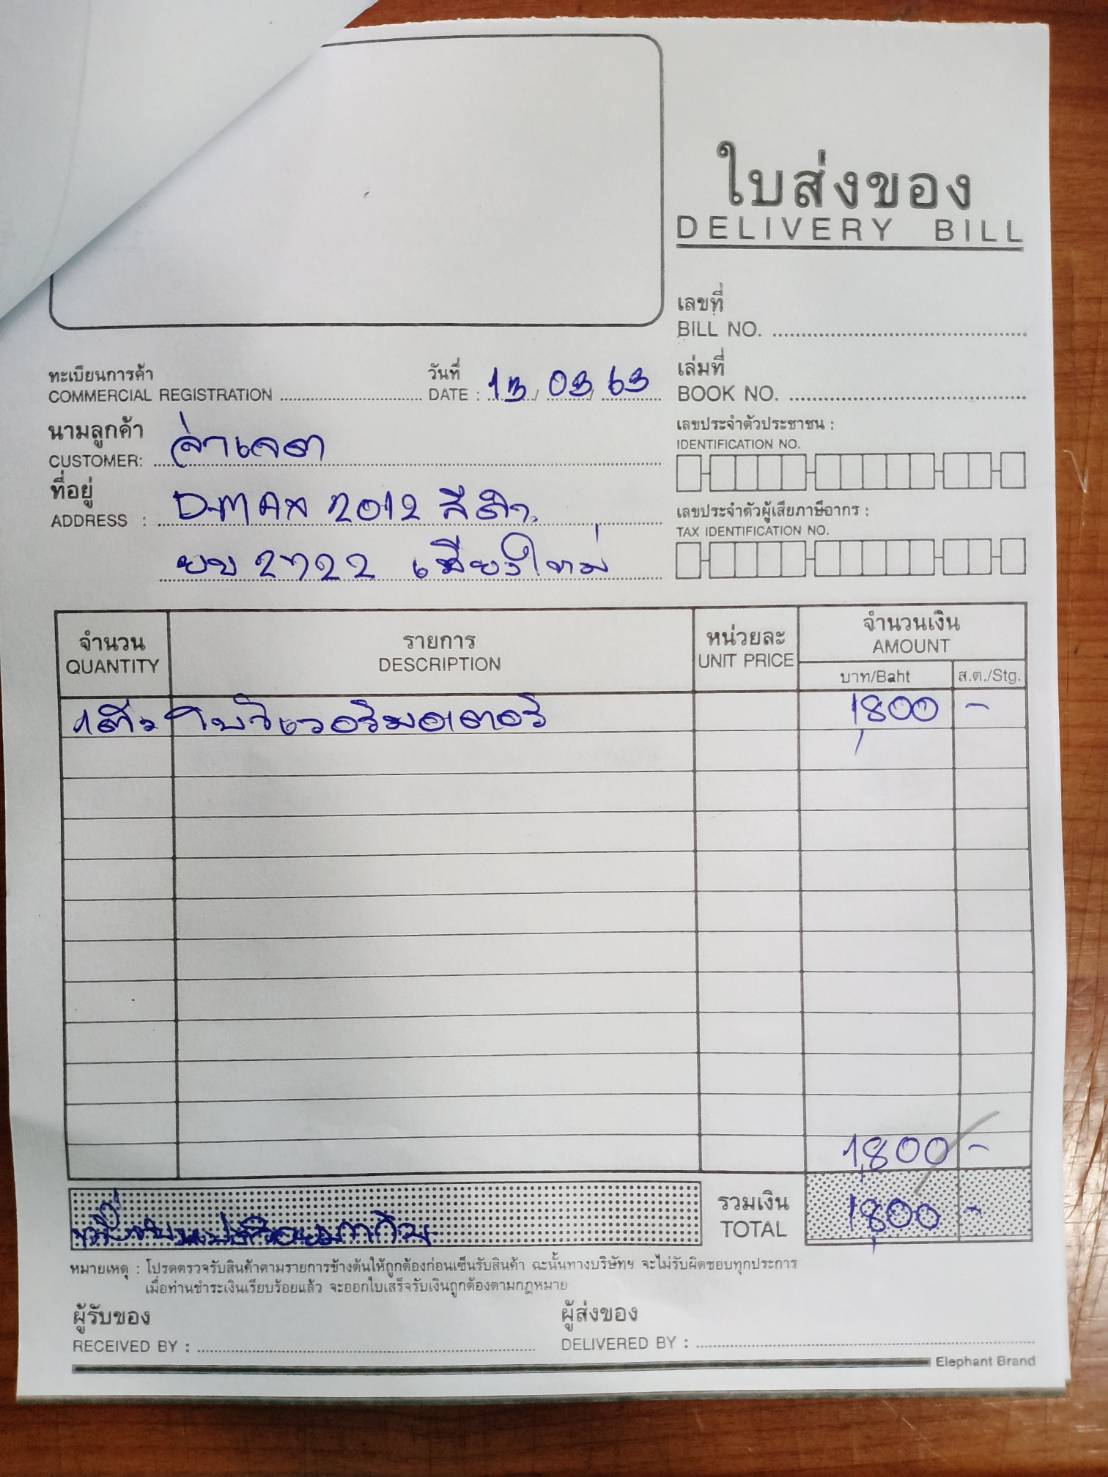 ใบส่งของ
DELIVERY BILL
เลขที่
BILL NO.
ทะเบียนการค้า
COMMERCIAL REGISTRATION
วันที่
DATE : 13/03/63
เล่มที่
BOOK NO.
นามลูกค้า
CUSTOMER: จ่าเจต
เลขประจำตัวประชาชน :
IDENTIFICATION NO.
ที่อยู่
ADDRESS : D-MAX 2012 สีดำ
ยข 2722 เชียงใหม่
เลขประจำตัวผู้เสียภาษีอากร :
TAX IDENTIFICATION NO.
จำนวน รายการ หน่วยละ จำนวนเงิน
QUANTITY DESCRIPTION UNIT PRICE AMOUNT
บาท/Baht ส.ต./Stg.
1ตัว 1,800 -
1,800 -
รวมเงิน
TOTAL 1,800 -
หมายเหตุ : โปรดตรวจรับสินค้าตามรายการข้างต้นให้ถูกต้องก่อนเซ็นรับสินค้า ฉะนั้นทางบริษัทฯ จะไม่รับผิดชอบทุกประการ
เมื่อท่านชำระเงินเรียบร้อยแล้ว จะออกใบเสร็จรับเงินถูกต้องตามกฎหมาย
ผู้รับของ ผู้ส่งของ
RECEIVED BY : DELIVERED BY :
Elephant Brand